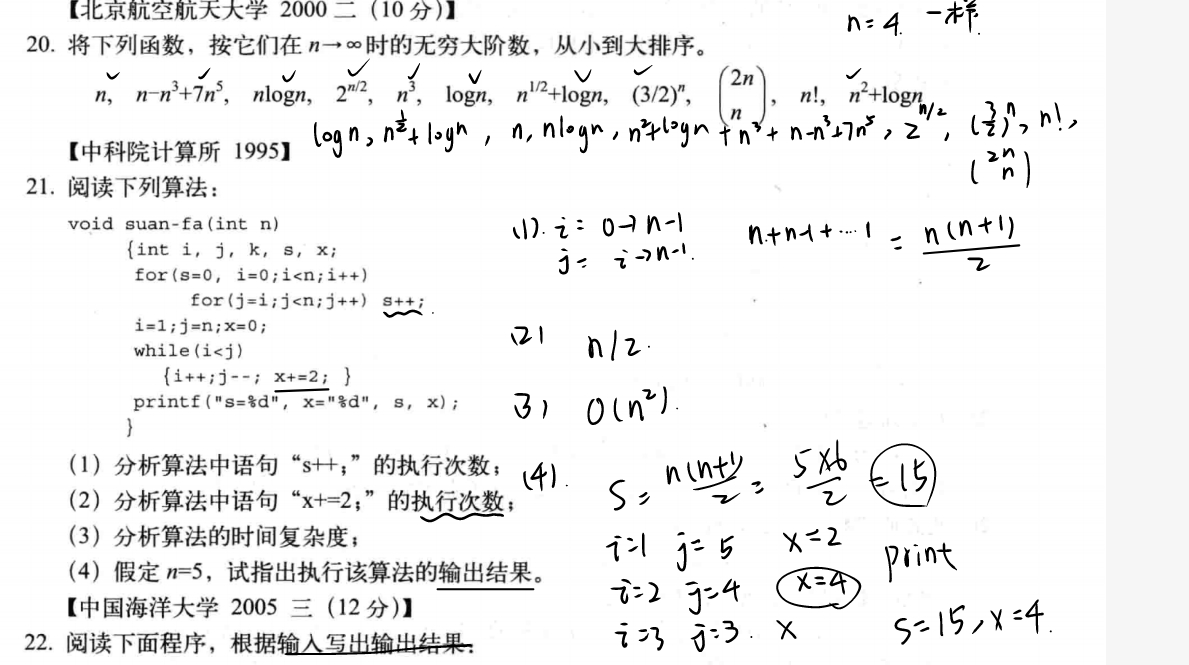 【北京航空航天大学 2000 二（10分）】
n=4. 一样.
20. 将下列函数，按它们在 n→∞时的无穷大阶数，从小到大排序。
n, n-n³+7n⁵, nlogn, 2^{n/2}, n³, logn, n^{1/2}+logn, (3/2)ⁿ, (2n n), n!, n²+logn
logn, n^{1/2}+logn, n, nlogn, n²+logn + n³+ n-n³+7n⁵, 2^{n/2}, (3/2)ⁿ, n!,
(2n n)
【中科院计算所 1995】
21. 阅读下列算法：
void suan-fa(int n)
{int i, j, k, s, x;
for(s=0, i=0;i<n;i++)
for(j=i;j<n;j++) s++;
i=1;j=n;x=0;
while(i<j)
{i++;j--; x+=2; }
printf("s=%d", x="%d", s, x);
}
(1). i= 0→n-1
j= i→n-1.
n+n-1+....1 = n(n+1)/2
(2) n/2.
(3) O(n²).
（1）分析算法中语句“s++;”的执行次数；
（2）分析算法中语句“x+=2;”的执行次数；
（3）分析算法的时间复杂度；
（4）假定 n=5，试指出执行该算法的输出结果。
(4). S= n(n+1)/2 = 5×6/2 = 15
i=1 j=5 x=2
i=2 j=4 x=4
i=3 j=3. x
print
S=15, x=4.
【中国海洋大学 2005 三（12分）】
22. 阅读下面程序，根据输入写出输出结果.